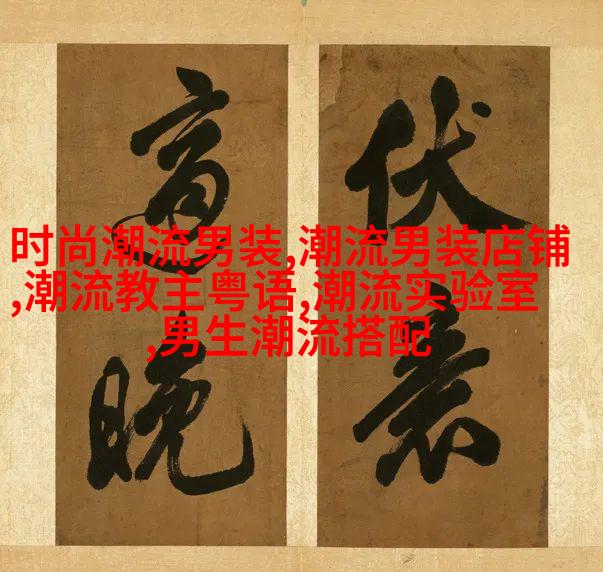 时尚潮流男装,潮流男装店铺
,潮流教主粤语,潮流实验室
,男生潮流搭配
伏
晚